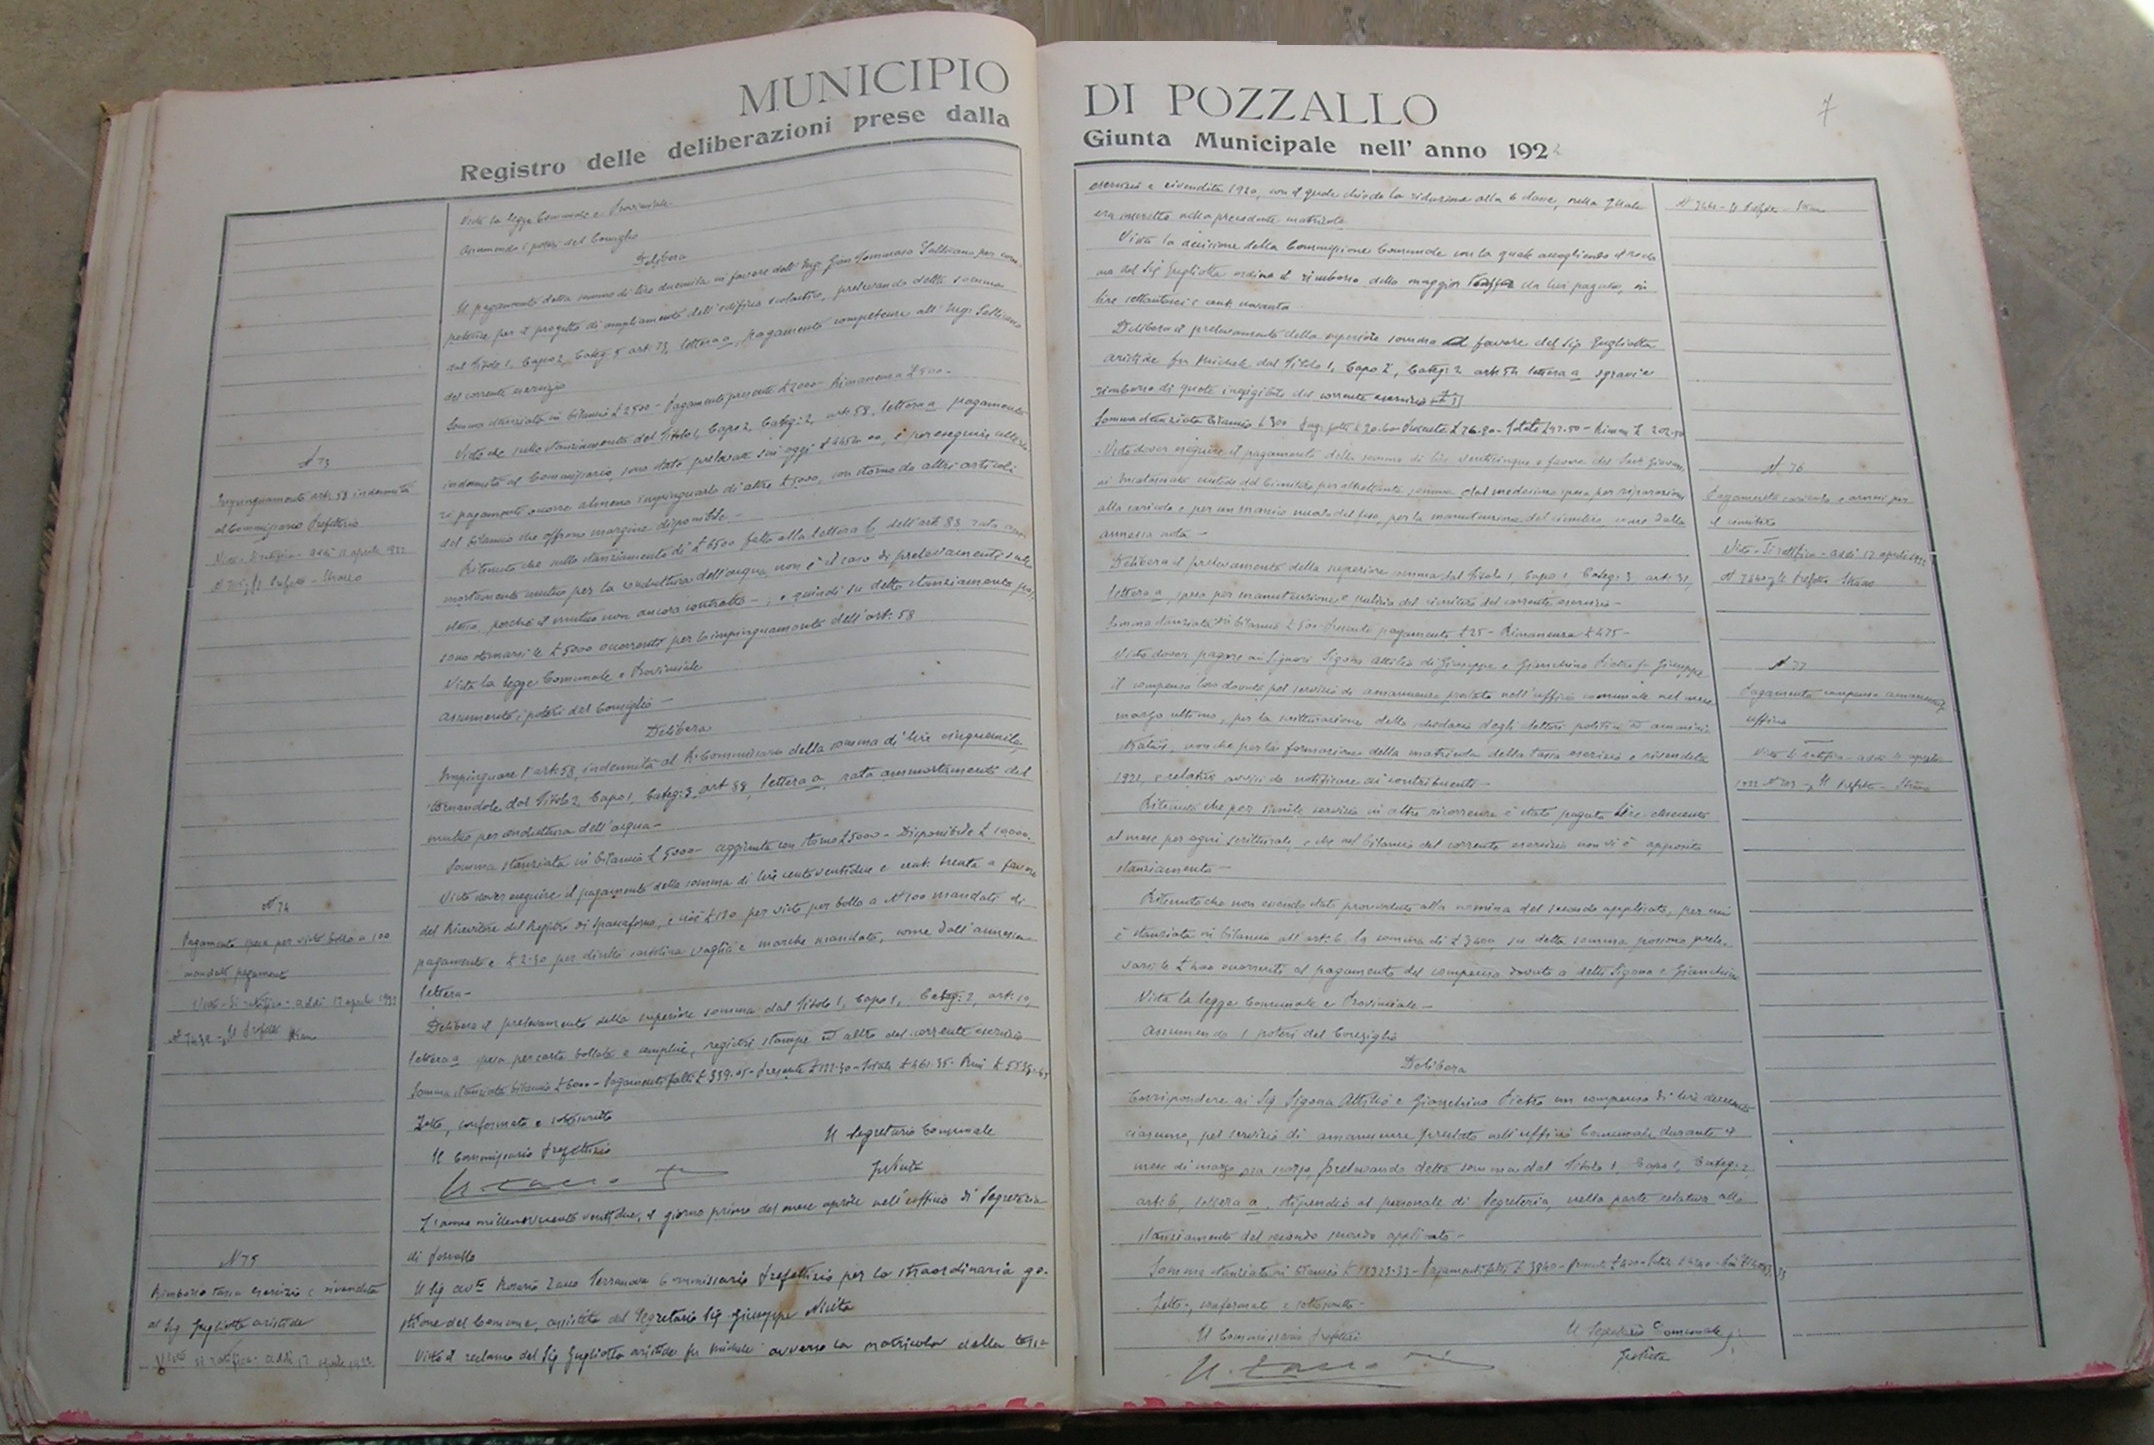 MUNICIPIO
Registro delle deliberazioni prese dalla
Vista la legge Comunale e Provinciale
Assumendo i poteri del Consiglio
Delibera
Il pagamento della somma di lire duemila in favore dell'Ing. Gian Tommaso per
per il progetto di ampliamento dell'edificio scolastico, prelevando detta somma
dal Titolo 1, Capo 2, Categ. 5 art. 73, lettera a, pagamento competenze all'Ing.
del corrente esercizio
Somma stanziata in bilancio £ 2500 - Pagamento presente £ 2000 - Rimanenza £ 500 -
Visto che sullo stanziamento del Titolo 1, Capo 2, Categ. 2, art. 58, lettera a pagamento
indennità al Commissario, sono state prelevate sin oggi e per eseguire
pagamento occorre almeno impinguarlo di altre £ 5000, con storno da altri articoli
del bilancio che offrono margine disponibile -
Ritenuto che sullo stanziamento di £ 6500 fatto alla lettera b dell'art. 88 rata
mortamento mutuo per la conduttura dell'acqua, non è il caso di prelevamenti
perché il mutuo non ancora contratto - , e quindi su detto stanziamento
sono stornarsi le £ 5000 occorrenti per lo impinguamento dell'art. 58
Vista la legge Comunale e Provinciale
Assumendo i poteri del Consiglio -
Delibera
Impinguare l'art. 58, indennità al R. Commissario della somma di lire cinquemila,
stornandole dal Titolo 2, Capo 1, Categ. 3, art 88, lettera a, rata ammortamento del
mutuo per conduttura dell'acqua -
Somma stanziata in bilancio £ 5000 - aggiunta con storno £ 5000 - Disponibile £ 10000 -
Visto dover eseguire il pagamento della somma di lire centoventidue e cent. trenta a favore
del Ricevitore del Registro di Spaccaforno, e cioè £ 120 per visto per bollo a N 100 mandati di
pagamento e £ 2.30 per diritto cartolina vaglia e marche mandato, come dall'annessa
lettera -
Delibera il prelevamento della superiore somma dal Titolo 1, Capo 1, Categ. 2, art. 10,
lettera a spesa per carta bollata e semplice, registri stampe ed altro del corrente esercizio
Somma stanziata bilancio £ 6000 - Pagamenti fatti £ 339.05 - Presente £ 122.30 - Totale £ 461.35 - Rim £ 5538.65
Letto, confermato e sottoscritto
Il Commissario Prefettizio
Il Segretario Comunale
L'anno millenovecento ventidue, il giorno primo del mese aprile nell'ufficio di Segreteria
di Pozzallo
Il Sig avv. Rosario Zacco Terranova Commissario Prefettizio per la straordinaria ge-
stione del Comune, assistito dal Segretario Sig. Giuseppe Nicita
Visto il reclamo del Sig Gugliotta Aristide fu Michele avverso la matricola della tassa
N 73
Impinguamento art. 58 indennità
al Commissario Prefettizio
Visto - Si ratifica - addì 12 aprile 1922
Il Prefetto -
N 74
Pagamento spesa per visto bollo a 100
mandati pagamento
Visto - Si ratifica - addì 12 aprile 1922
Il Prefetto
N 75
Rimborso tassa esercizio e rivendita
al Sig Gugliotta Aristide
Visto si ratifica - addì 12 aprile 1922
DI POZZALLO
7
Giunta Municipale nell' anno 1922
esercizio e rivendita 1920, con il quale chiede la riduzione alla 6 classe, nella quale
era inscritto nella precedente matricola
Vista la decisione della Commissione Comunale con la quale accogliendo il
del Sig Gugliotta ordina il rimborso della maggior tassa da lui pagata, in
lire settantasei e cent. novanta
Delibera il prelevamento della superiore somma a favore del Sig Gugliotta
Aristide fu Michele dal Titolo 1, Capo 2, Categ. 2 art. 54 lettera a sgravi e
rimborso di quote inesigibili del corrente esercizio
Somma stanziata bilancio £ 300 Pag. fatti £ 20.60 - Presente £ 76.90 - Totale £ 97.50 - Rimane £ 202.50
Visto dover eseguire il pagamento della somma di lire venticinque a favore del
custode del Cimitero per altrettante somme dal medesimo spese per riparazione
alla carriola e per un manico per la manutenzione del cimitero, come dalla
annessa nota -
Delibera il prelevamento della superiore somma dal Titolo 1, Capo 1, Categ. 3 art. 31,
lettera a, spesa per manutenzione e pulizia del cimitero del corrente esercizio -
Somma stanziata in bilancio £ 500 - Presente pagamento £ 25 - Rimanenza £ 475 -
Visto dover pagare ai Signori Sigona Attilio di Giuseppe e Gianchino Pietro fu Giuseppe
il compenso loro dovuto pel servizio da amanuense prestato nell'ufficio comunale nel mese
marzo ultimo, per la scritturazione dello schedario degli elettori politici ed ammini-
strativi, nonché per la formazione della matricola della tassa esercizio e rivendita
1921, e relativi avvisi da notificare ai contribuenti -
Ritenuto che per simile servizio in altre ricorrenze è stato pagato lire duecento
al mese per ogni scritturale, e che nel bilancio del corrente esercizio non vi è apposito
stanziamento -
Ritenuto che non essendo stato provveduto alla nomina del secondo applicato, per cui
è stanziata in bilancio all'art. 6 la somma di £ 3400 su detta somma possono prele-
varsi le £ 400 occorrenti al pagamento del compenso dovuto a detti Sigona e Gianchino
Vista la legge Comunale e Provinciale -
Assumendo i poteri del Consiglio
Delibera
Corrispondere ai Sig Sigona Attilio e Gianchino Pietro un compenso di lire duecento
ciascuno, pel servizio di amanuense prestato nell'ufficio Comunale durante il
mese di marzo ora scorso, prelevando detta somma dal Titolo 1 Capo 1, Categ. 2
art. 6, lettera a, stipendio al personale di Segreteria, nella parte relativa allo
stanziamento del secondo applicato -
Letto, confermato e sottoscritto -
Il Commissario Prefettizio
Il Segretario Comunale
Il Prefetto -
N 76
Pagamento carriola e arnesi per
il cimitero
Visto - Si ratifica - addì 12 aprile 1922
Il Prefetto
N 77
Pagamento compenso amanuensi
ufficio
Visto si ratifica - addì 12 aprile
1922 Il Prefetto -